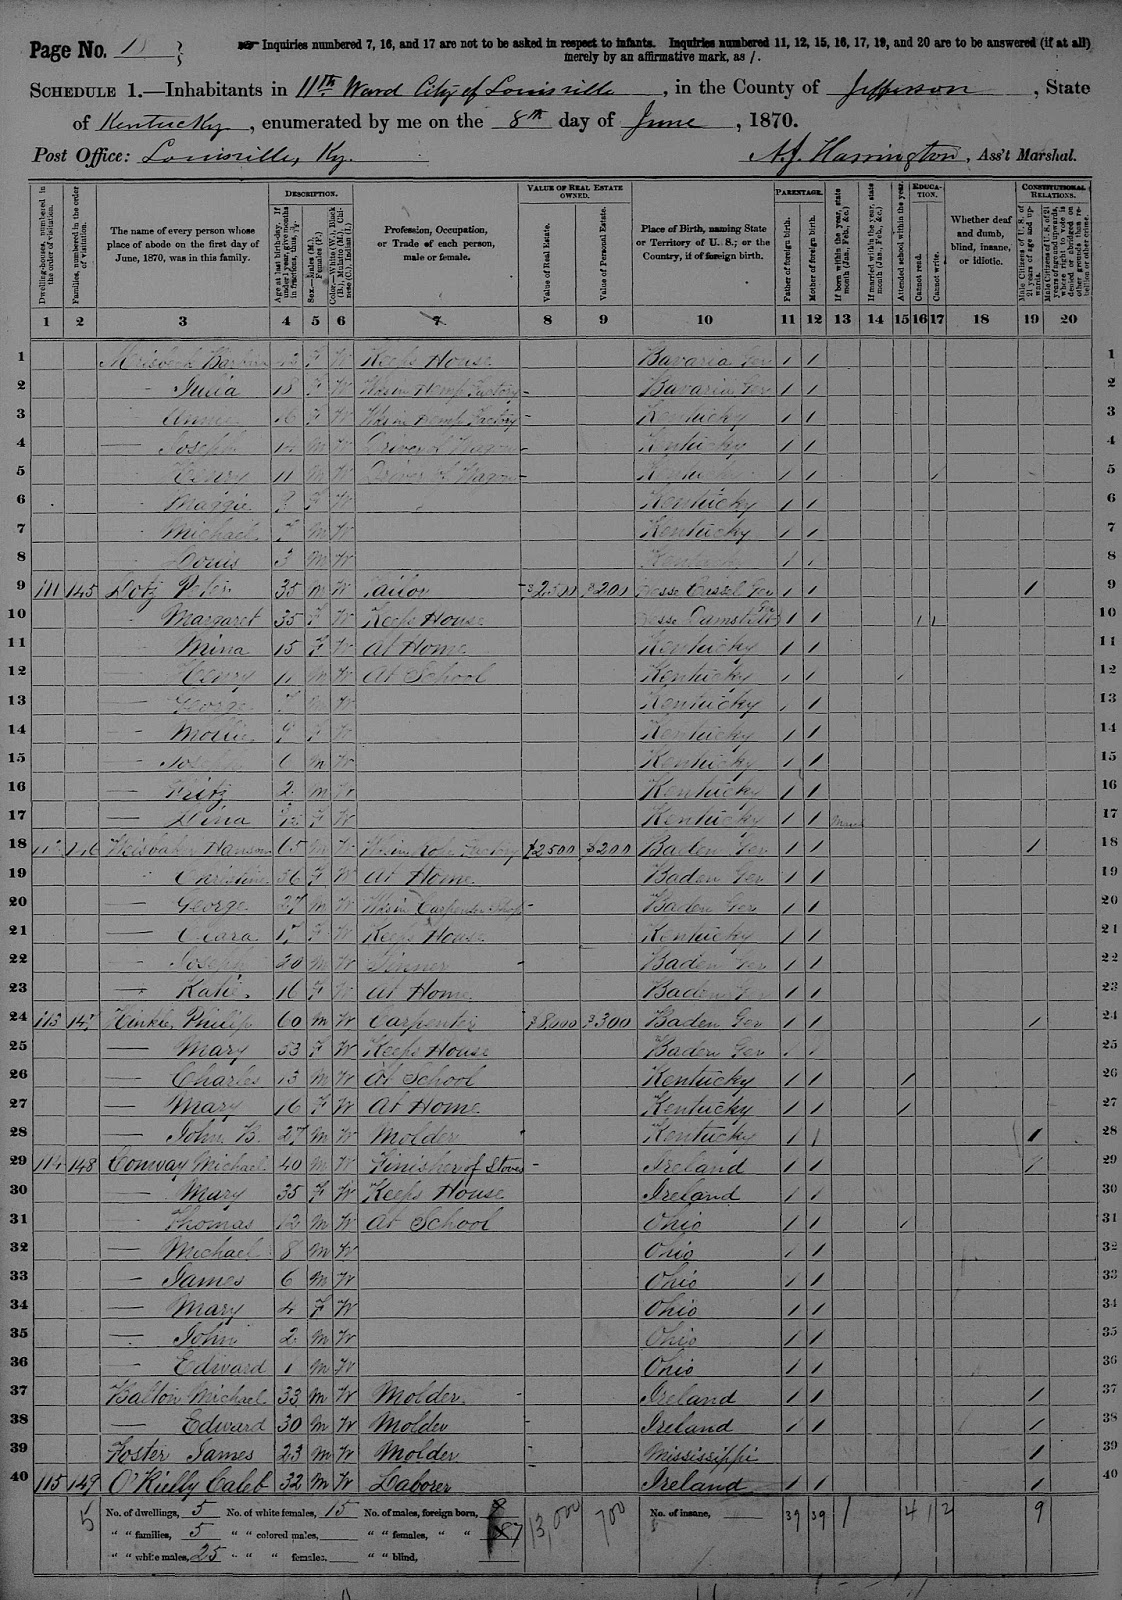 Page No. 18
Inquiries numbered 7, 16, and 17 are not to be asked in respect to infants. Inquiries numbered 11, 12, 15, 16, 17, 19, and 20 are to be answered (if at all) merely by an affirmative mark, as /.
SCHEDULE 1.—Inhabitants in 11th Ward City of Louisville, in the County of Jefferson, State
of Kentucky, enumerated by me on the 8th day of June, 1870.
Post Office: Louisville, Ky. Harrington, Ass't Marshal.
Dwelling-houses, numbered in the order of visitation.
Families, numbered in the order of visitation.
The name of every person whose place of abode on the first day of June, 1870, was in this family.
DESCRIPTION.
Age at last birth-day. If under 1 year, give months in fractions, thus,
Sex.—Males (M.), Females (F.)
Color.—White (W.), Black (B.), Mulatto (M.), Chinese (C.), Indian (I.)
Profession, Occupation, or Trade of each person, male or female.
VALUE OF REAL ESTATE OWNED.
Value of Real Estate.
Value of Personal Estate.
Place of Birth, naming State or Territory of U. S.; or the Country, if of foreign birth.
PARENTAGE.
Father of foreign birth.
Mother of foreign birth.
If born within the year, state month (Jan., Feb., &c.)
If married within the year, state month (Jan., Feb., &c.)
Attended school within the year.
EDUCATION.
Cannot read.
Cannot write.
Whether deaf and dumb, blind, insane, or idiotic.
CONSTITUTIONAL RELATIONS.
Male Citizens of U. S. of 21 years of age and upwards.
Male Citizens of U. S. of 21 years of age and upwards, where right to vote is denied or abridged on other grounds than rebellion or other crime.
1 2 3 4 5 6 7 8 9 10 11 12 13 14 15 16 17 18 19 20
1 F W Keeps House Bavaria Ger / / 1
2 Julia 18 F W Wks in Hemp Factory Bavaria Ger / / 2
3 Annie 16 F W Wks in Hemp Factory Kentucky / / 3
4 — Joseph 14 M W Driver of Wagon Kentucky / / 4
5 — Henry 11 M W Driver of Wagon Kentucky / / / 5
6 Maggie F W Kentucky / / 6
7 Michael 7 M W Kentucky / / 7
8 Louis 3 M W Kentucky / / 8
9 111 145 Lotz Peter 35 M W Tailor $2500 $200 Hesse Cassel Ger / / / 9
10 Margaret 35 F W Keeps House Hesse Ger / / / / 10
11 — Mina 15 F W At Home Kentucky / / 11
12 — Henry 11 M W At School Kentucky / / / 12
13 — George M W Kentucky / / 13
14 — Mollie F W Kentucky / / 14
15 — Joseph 6 M W Kentucky / / 15
16 — Fritz 2 M W Kentucky / / 16
17 — F W Kentucky / / March 17
18 112 146 65 M W Factory $2500 $200 Baden Ger / / / 18
19 Christine 56 F W At Home Baden Ger / / 19
20 — George 27 M W Wks in Carpenter Shop Baden Ger / / 20
21 — Clara F W Keeps House Kentucky / / 21
22 — Joseph 20 M W Tinner Baden Ger / / 22
23 — Katie 16 F W At Home Baden Ger / / 23
24 113 147 Hinkle, Philip 60 M W Carpenter $8,000 $300 Baden Ger / / / 24
25 — Mary 53 F W Keeps House Baden Ger / / 25
26 — Charles 13 M W At School Kentucky / / / 26
27 — Mary 16 F W At Home Kentucky / / / 27
28 — John B. 27 M W Molder Kentucky / / / 28
29 114 148 Conway Michael 40 M W Finisher of Stoves Ireland / / / 29
30 — Mary 35 F W Keeps House Ireland / / 30
31 — Thomas 12 M W At School Ohio / / / 31
32 — Michael 8 M W Ohio / / 32
33 — James 6 M W Ohio / / 33
34 — Mary 4 F W Ohio / / 34
35 — John 2 M W Ohio / / 35
36 — Edward 1 M W Ohio / / 36
37 Halton Michael 33 M W Molder Ireland / / / 37
38 — Edward 30 M W Molder Ireland / / / 38
39 Foster James 23 M W Molder Mississippi / 39
40 115 149 O'Kielly Caleb 32 M W Laborer Ireland / / / 40
5 No. of dwellings, 5 No. of white females, 15 No. of males, foreign born, 8 13,000 700 No. of insane, 39 39 1 4 1 2 9
" " families, 5 " " colored males, " " females, " " 7
" " white males, 25 " " " females, " " blind,